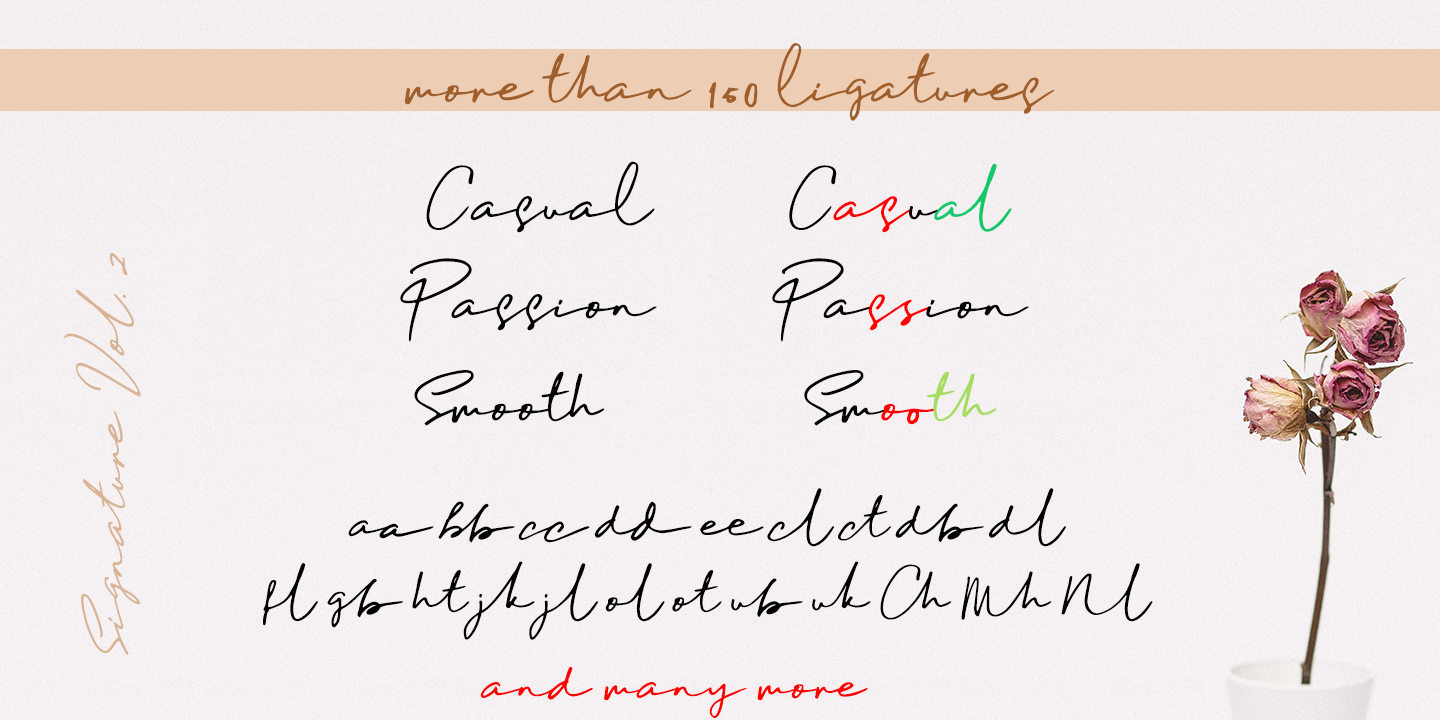 more than 150 ligatures
Casual Casual
Passion Passion
Smooth Smooth
Signature Vol. 2
aa bb cc dd ee cl ct db dl
fl gb ht jk jl ol ot ub uk Ch Mh Nl
and many more